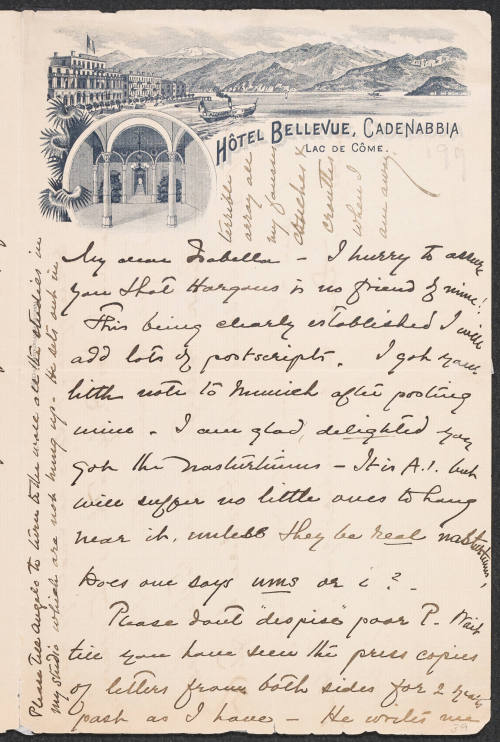 HÔTEL BELLEVUE, CADENABBIA
LAC DE CÔME.
197
My dear Isabella – I hurry to assure
you that Hargous is no friend of mine!
This being clearly established I will
add lots of postscripts. I got your
little note to Munich after posting
mine. I am glad, delighted you
got the Nasturtiums – It is A.1. but
will suffer no little ones to hang
near it, unless they be real nasturtiums,
Does one say ums or i?
Please don't "despise" poor P. Wait
till you have seen the press copies
of letters from both sides for 2 years
past as I have – He writes me
39
Please tell Angelo to turn to the wall all the studies in
my studio which are not hung up – He sets out in
terrible
array all
my fausses
couches &
croutes
when I
am away.